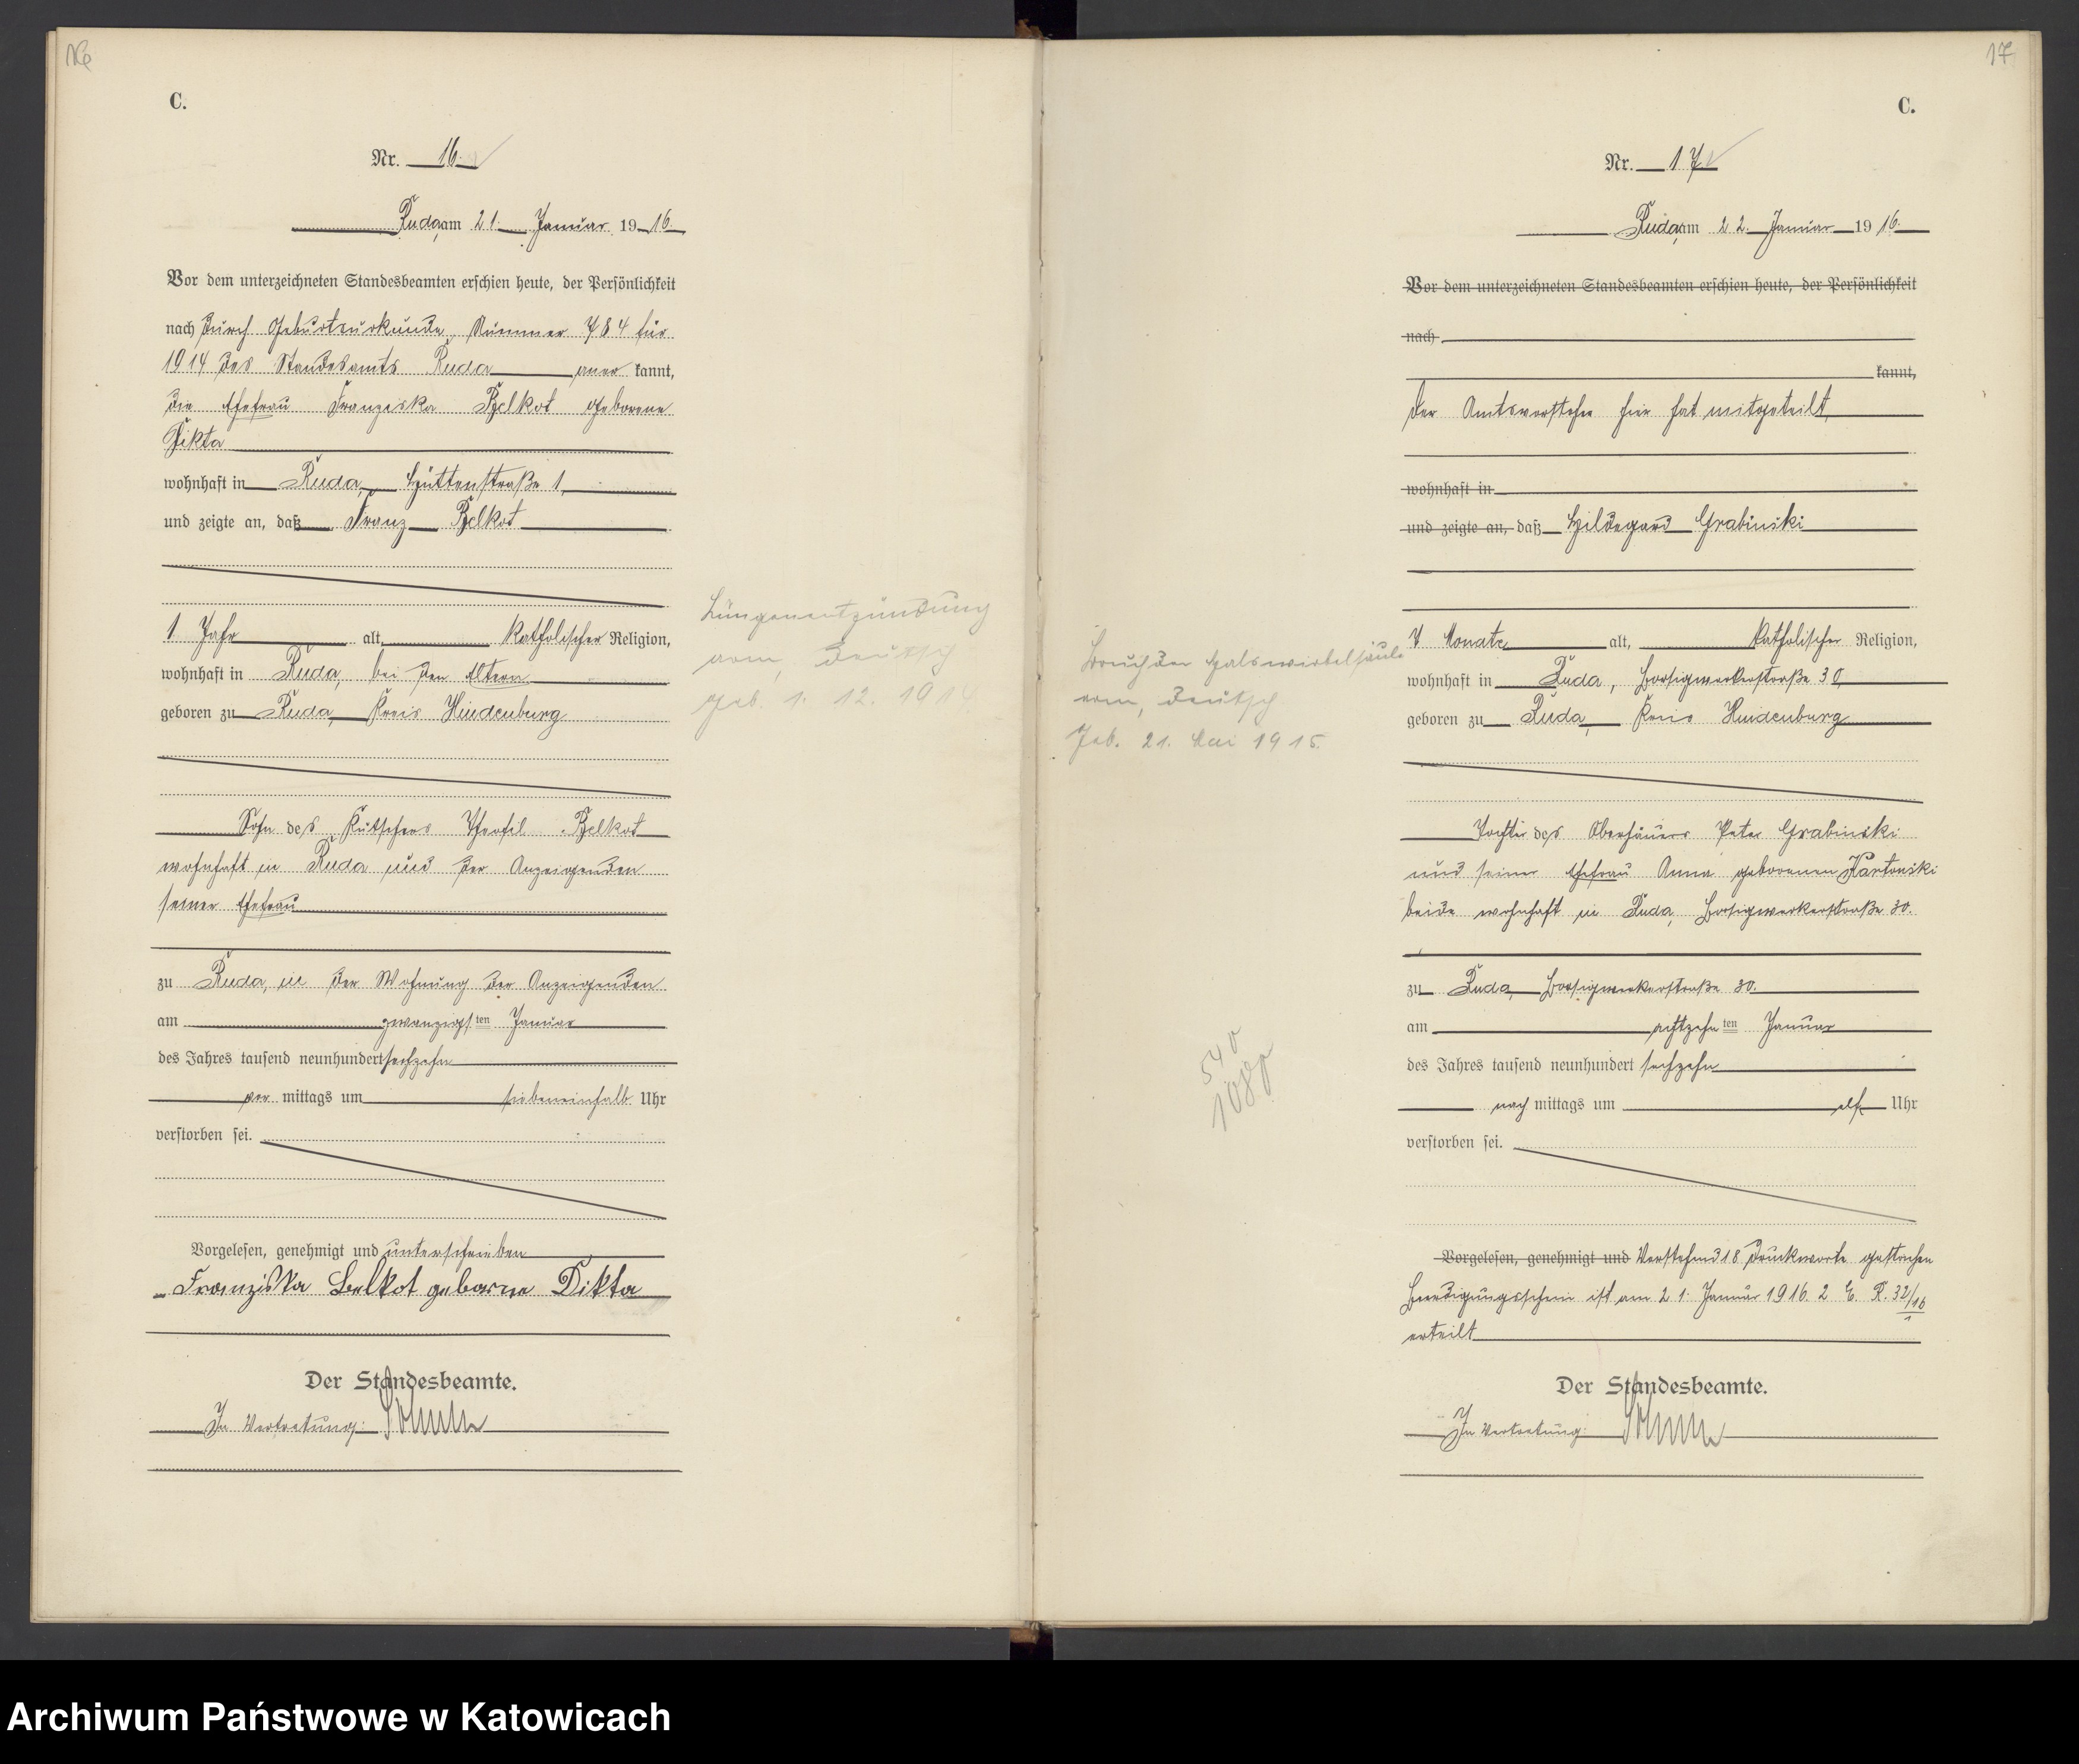 16
C.
Nr. 16.
Ruda, am 21. Januar 1916.
Vor dem unterzeichneten Standesbeamten erschien heute, der Persönlichkeit
nach durch Geburtsurkunde Nummer 784 für
1914 des Standesamts Ruda aner kannt,
die Ehefrau Franziska Belkot geborene
Dikta
wohnhaft in Ruda, Hüttenstraße 1,
und zeigte an, daß Franz Belkot
1 Jahr alt, katholischer Religion,
wohnhaft in Ruda, bei den Eltern
geboren zu Ruda, Kreis Hindenburg
Sohn des Kutschers Theofil Belkot
wohnhaft in Ruda und der Anzeigenden
seiner Ehefrau
zu Ruda, in der Wohnung der Anzeigenden
am zwanzigsten Januar
des Jahres tausend neunhundert sechzehn
vor mittags um siebeneinhalb Uhr
verstorben sei.
Vorgelesen, genehmigt und unterschrieben
Franziska Belkot geborne Dikta
Der Standesbeamte.
In Vertretung:
Lungenentzündung
arm, deutsch
geb. 1. 12. 1914
17
C.
Nr. 17
Ruda, am 22. Januar 1916.
Vor dem unterzeichneten Standesbeamten erschien heute, der Persönlichkeit
nach
kannt,
Der Amtsvorsteher hier hat mitgeteilt,
wohnhaft in
und zeigte an, daß Hildegard Grabinski
7 Monate alt, katholischer Religion,
wohnhaft in Ruda, Borsigwerkerstraße 30,
geboren zu Ruda, Kreis Hindenburg
Tochter des Oberhäuers Peter Grabinski
und seiner Ehefrau Anna geborenen
beide wohnhaft in Ruda, Borsigwerkerstraße 30.
zu Ruda, Borsigwerkerstraße 30.
am achtzehnten Januar
des Jahres tausend neunhundert sechzehn
nach mittags um elf Uhr
verstorben sei.
Vorgelesen, genehmigt und Vorstehend 18 Druckworte gestrichen
Beerdigungsschein ist am 21. Januar 1916. 2 E. R. 32/16
erteilt
Der Standesbeamte.
In Vertretung:
Bruch der Halswirbelsäule
arm, deutsch
Geb. 21. Mai 1915.
540
Archiwum Państwowe w Katowicach